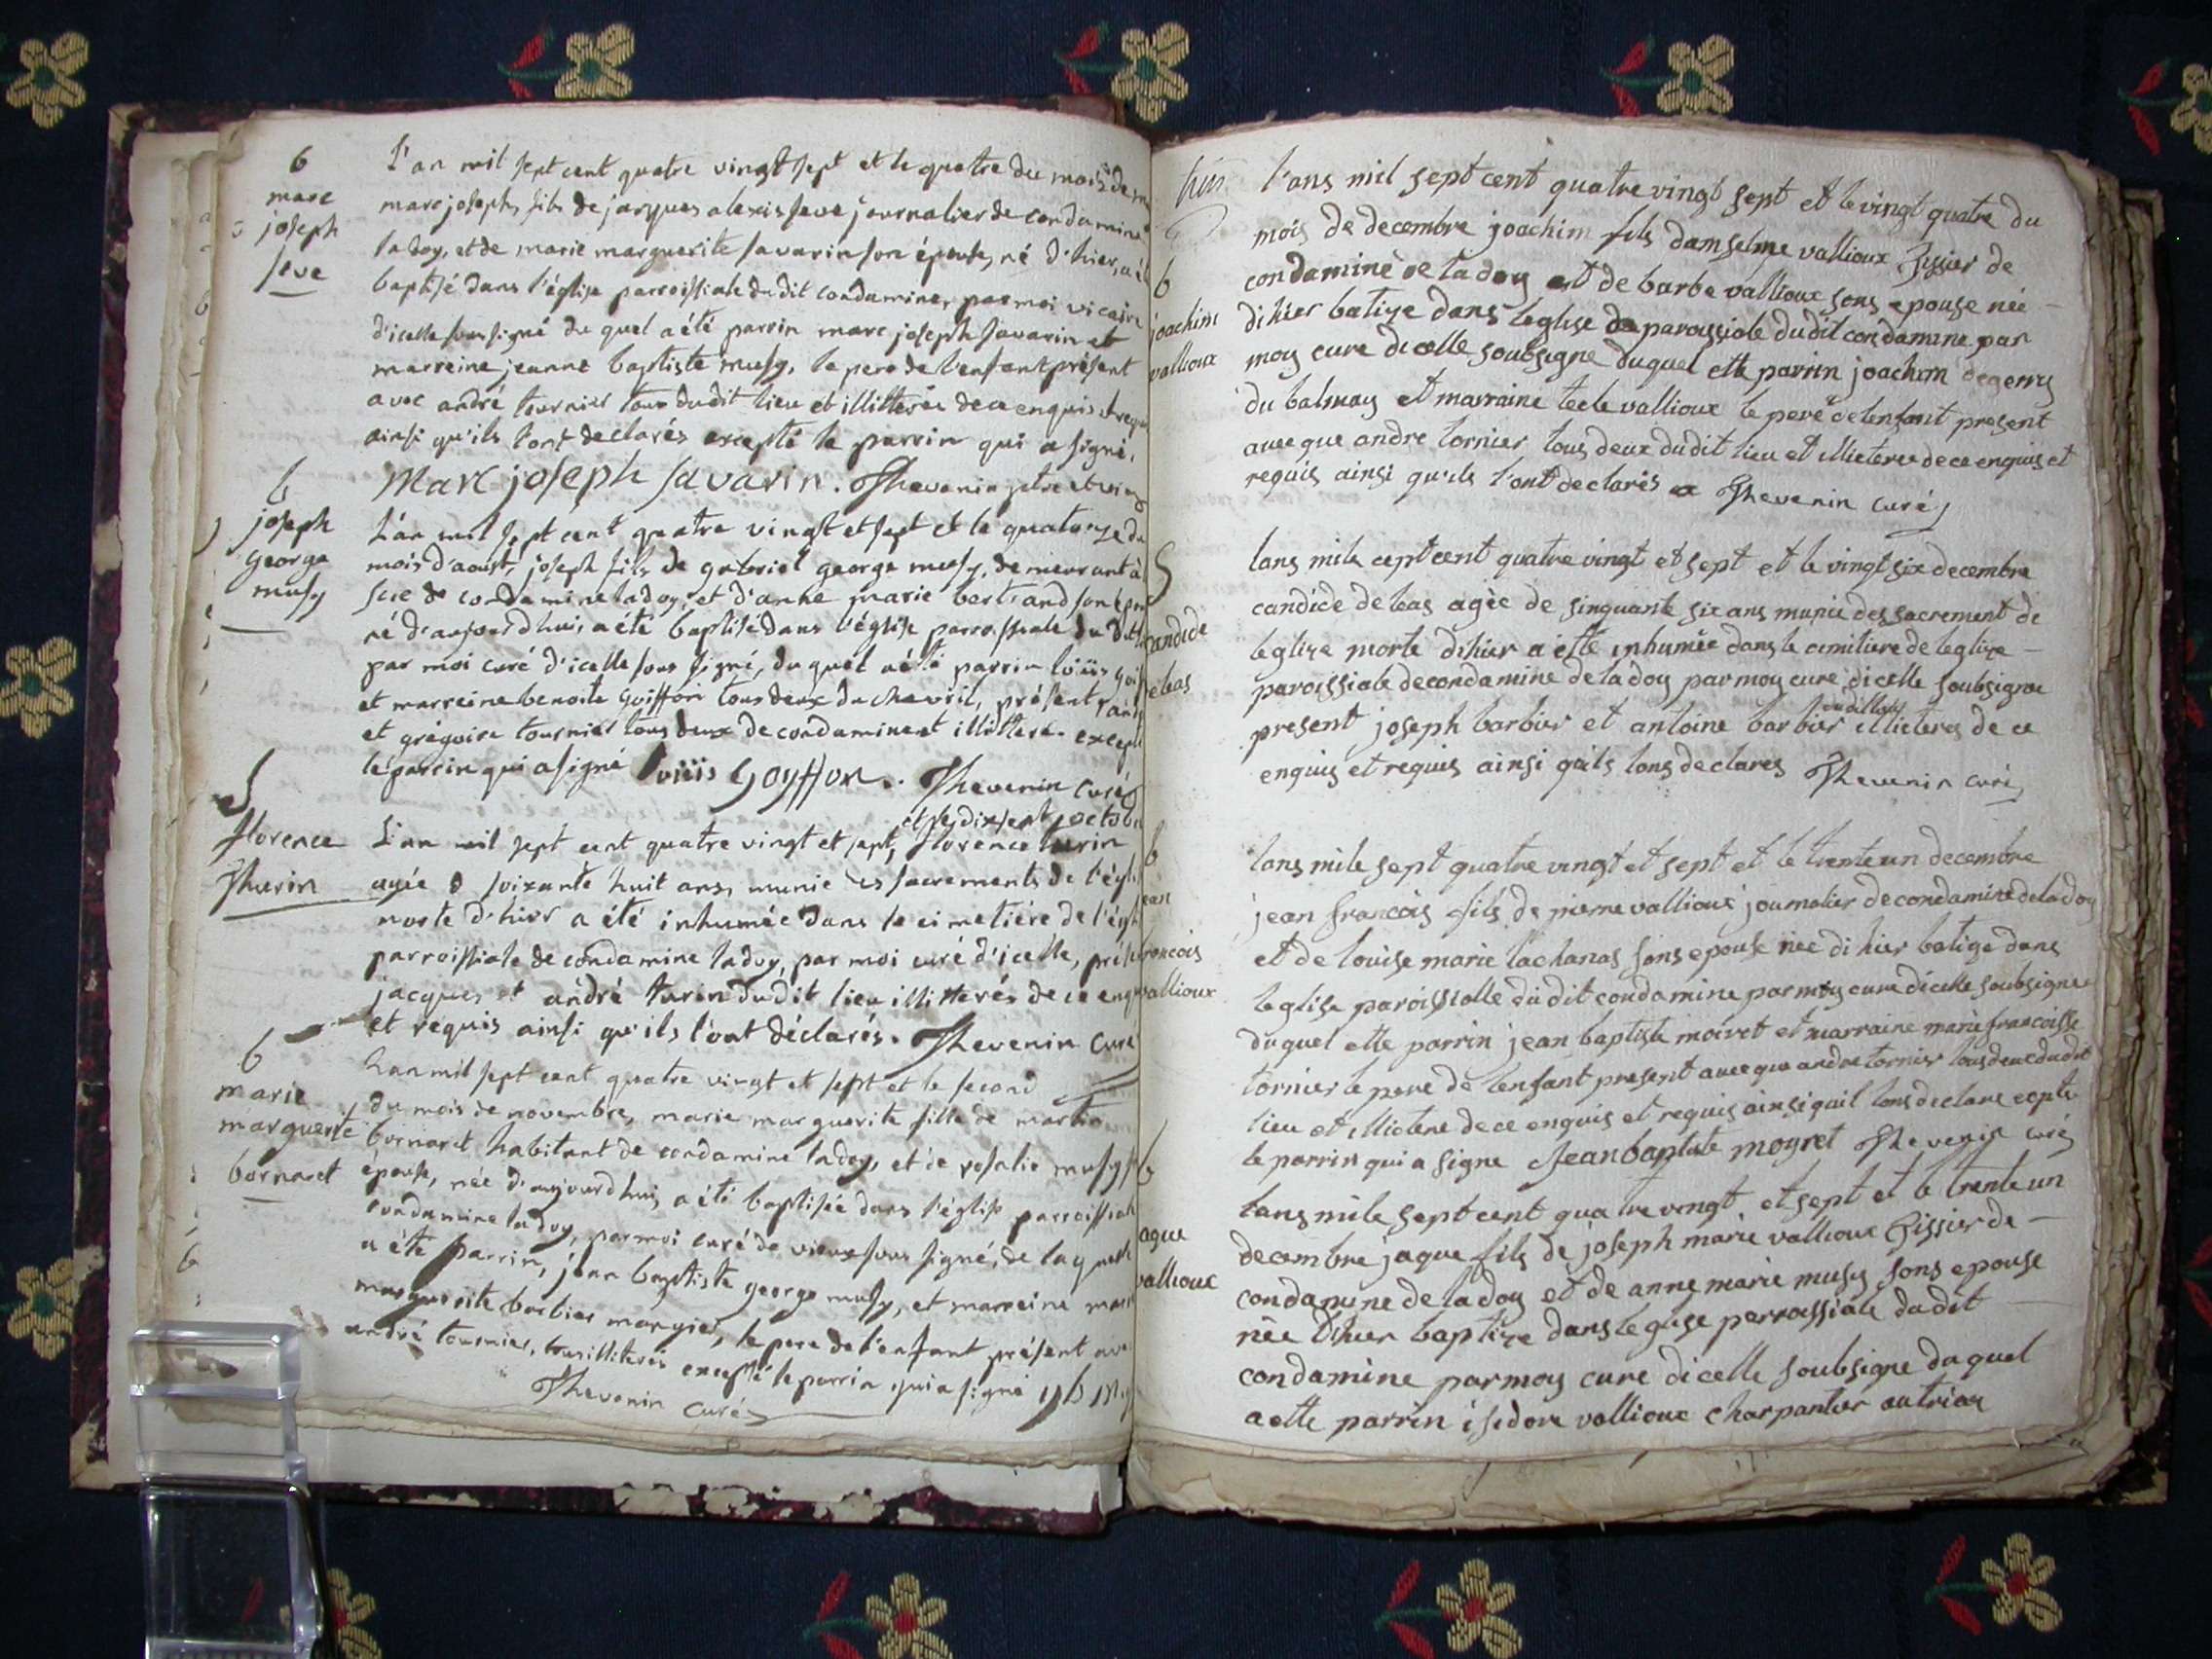 6
marc
joseph
seve
L'an mil sept cent quatre vingt sept et le quatre du mois de
marc joseph, fils de jacques alexis seve journalier de condamine
ladoy, et de marie marguerite savarin son épouse, né d'hier, a été
baptisé dans l'église parroissiale dudit condamine, par moi vicaire
d'icelle soussigné du quel a été parrin marc joseph savarin et
marreine jeanne baptiste musy, le pere de l'enfant présent
avec andré tournier tous dudit lieu et illitterés de ce enquis et requis
ainsi qu'ils l'ont declarés excepté le parrin qui a signé.
Marc joseph savarin. Thevenin
b
joseph
george
musy
L'an mil sept cent quatre vingt et sept et le quatorze du
mois d'aoust, joseph fils de gabriel george musy, demeurant à
scie de condamine ladoy, et d'anne marie bertrand son
né d'aujourd'hui, a été baptisé dans l'église parroissiale du dit
par moi curé d'icelle sous signé, du quel a été parrin loüis
et marreine benoite Goiffon tous deux du chevril, présent
et grégoire tournier tous deux de condamine et illitteré. excepté
le parrin qui a signé loüiis Goyffon. Thevenin curé
S
florence
Thurin
et le dix sept octobre
L'an mil sept cent quatre vingt et sept, florence turin
agée d soixante huit ans, munie des sacrements de l'église
morte d'hier a été inhumée dans le cimetiére de l'église
parroissiale de condamine ladoy, par moi curé d'icelle,
jacques et andré turin dudit lieu illitterés de ce enquis
et requis ainsi qu'ils l'ont déclarés. Thevenin curé
b
marie
marguerite
bornaret
L'an mil sept cent quatre vingt et sept et le second
du mois de novembre, marie marguerite fille de martin
bornaret habitant de condamine ladoy, et de rosalie musy
épouse, née d'aujourdhui, a été baptisée dans l'église parroissiale
condamine ladoy, par moi curé de vieux sous signé, de laquelle
a été parrin, jean baptiste george musy, et marreine
marguerite barbier mangier, le pere de l'enfant présent avec
andré tournier, tous illiterés excepté le parrin qui a signé
Thevenin curé
b
joachim
vallioux
l'ans mil sept cent quatre vingt sept et le vingt quatre du
mois de decembre joachim fils damselme vallioux tissier de
condamine de la doy et de barbe vallioux sons epouse née
dihier batize dans leglise paroissiale dudit condamine par
moy cure dicelle soubsigne duquel ette parrin joachim degerry
du balmay et marraine tecle vallioux le pere de lenfant present
aueque andre tornier tous deux dudit lieu et illieteree de ce enquis et
requis ainsi qu'ils l'ont declarés Thevenin curé
S
candide
debas
lans mile cept cent quatre vingt et sept et le vingt six decembre
candide debas agèe de sinquante six ans munie des sacrement de
leglize morte dihier a ette inhumée dans le cimitiere de leglize
paroissiale de condamine de la doy par moy cure dicelle soubsigne
present joseph barbier et antoine barbier illieteres de ce
enquis et requis ainsi quils lons declares Thevenin curé
b
jean
francois
vallioux
lans mile sept quatre vingt et sept et le trente un decembre
jean francois fils de pierre vallioux journalier de condamine de la doy
et de louise marie lachanas sons epouse née dihier batize dans
leglise paroissialle dudit condamine par moy cure dicelle soubsigne
duquel ette parrin jean baptiste moiret et marraine marie francoisse
tornier le pere de lenfant present aueque andre tornier tous deux dudit
lieu et illietere de ce enquis et requis ainsi quil lons declare
le parrin qui a signe Jean baptiste moyret Thevenin curé
b
jaque
vallioux
lans mile sept cent quatre vingt et sept et le trente un
decembre jaque fils de joseph marie vallioux tissier de
condamine de la doy et de anne marie musy sons epouse
née dihier baptize dans leglise perroissiale dudit
condamine par moy cure dicelle soubsigne duquel
a ette parrin isidore vallioux charpantier